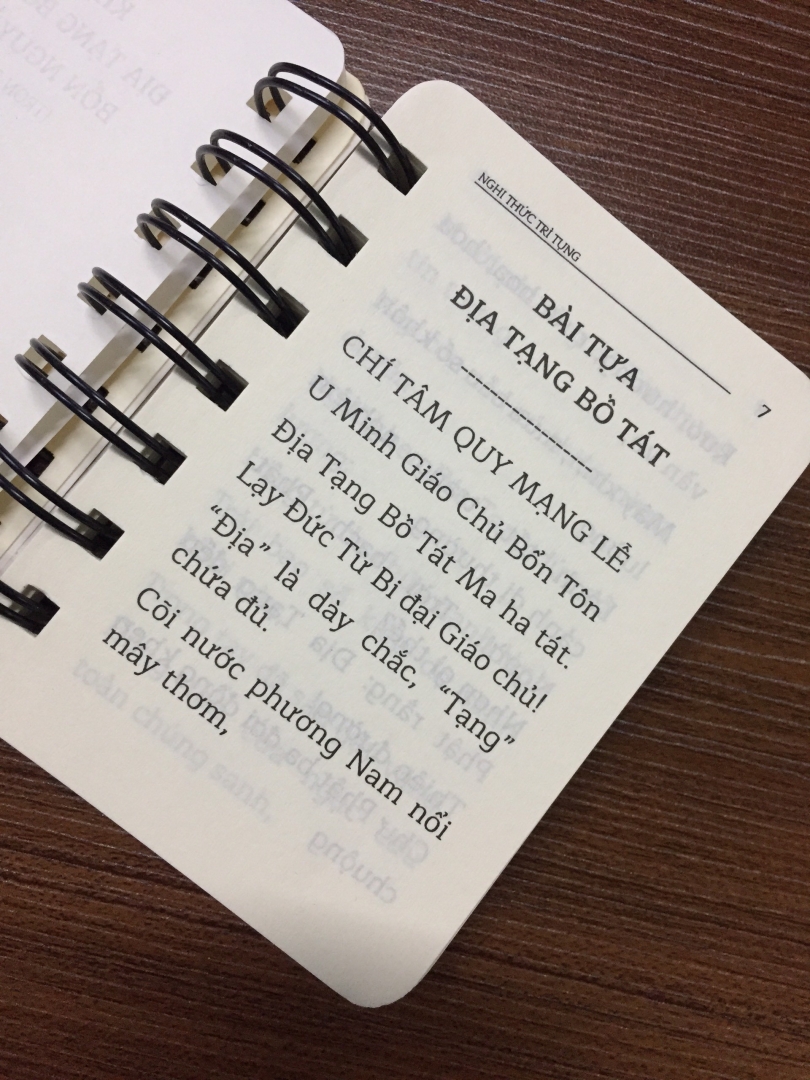 NGHI THỨC TRÌ TỤNG
7
BÀI TỰA
ĐỊA TẠNG BỒ TÁT
CHÍ TÂM QUY MẠNG LỄ
U Minh Giáo Chủ Bổn Tôn
Địa Tạng Bồ Tát Ma ha tát.
Lạy Đức Từ Bi đại Giáo chủ!
“Địa” là dày chắc, “Tạng”
chứa đủ.
Cõi nước phương Nam nổi
mây thơm,